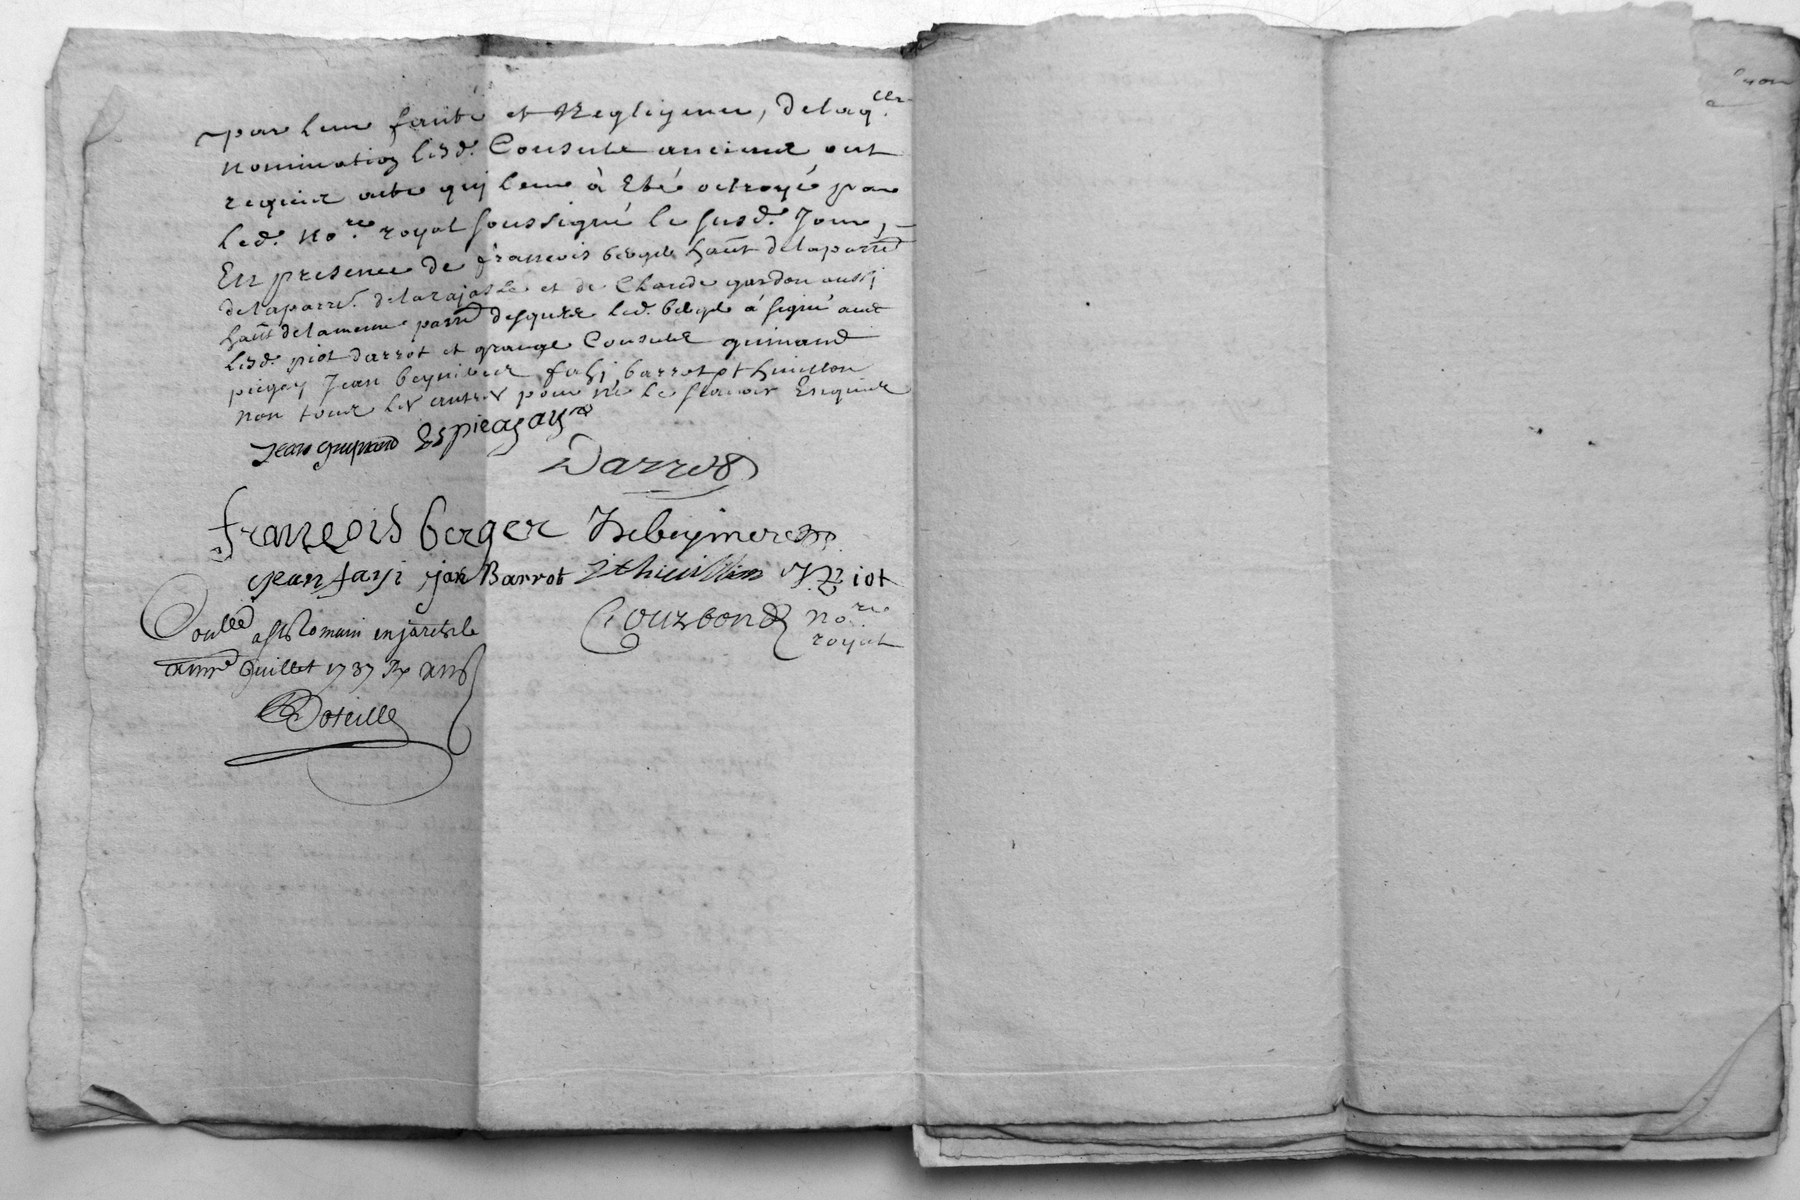 par leur faute et Negligence, delaq.lle
nomination lesd. Consuls anciens ont
requis acte quj leur à Eté octroyé par
led. no.re royal soussigné le susd. Jour,
En presence de françois berger hant delaparre
delaparre. delarajasse et de Claude gordon aussj
hant delameme parre desquels led. berger á signé avec
lesd. piot darrot et grange Consuls guinand
piegay Jean beynier fahj barrot thuillon
non tous les autres pour ne le scavoir Enquis
Jean guinand Espieagay
Darrot
françois berger
Jean fayi Jan Barrot Piot
Gourbon no.re
royal
a st Romain en jarestz le
Juillet 1737